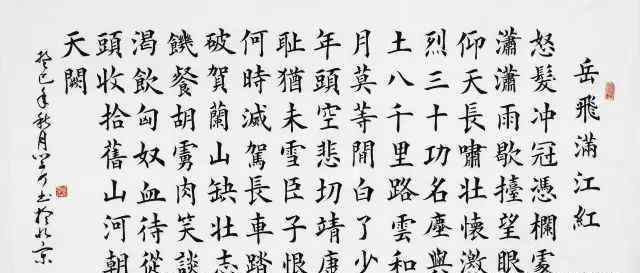 岳飛滿江紅
怒髮冲冠憑欄處
瀟瀟雨歇擡望眼
仰天長嘯壯懷激
烈三十功名塵與
土八千里路雲和
月莫等間白了少
年頭空悲切靖康
耻猶未雪臣子恨
何時滅駕長車踏
破賀蘭山缺壯志
饑餐胡虜肉笑談
渴飲匈奴血待從
頭收拾舊山河朝
天闕
癸巳年秋月書於北京